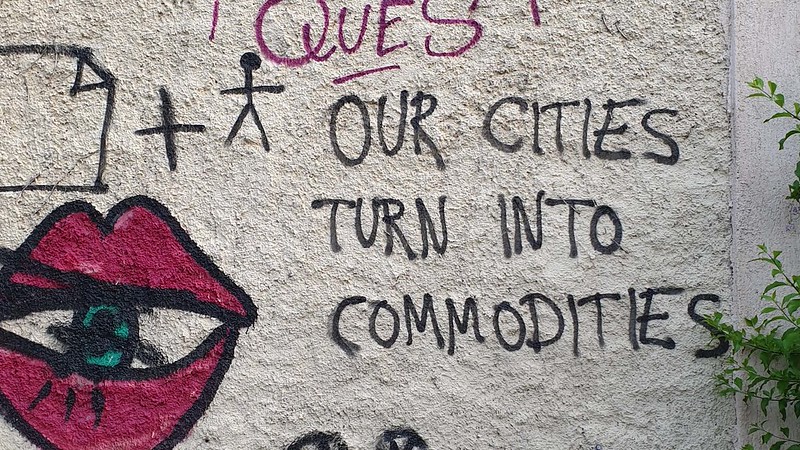 QUEST
OUR CITIES
TURN INTO
COMMODITIES